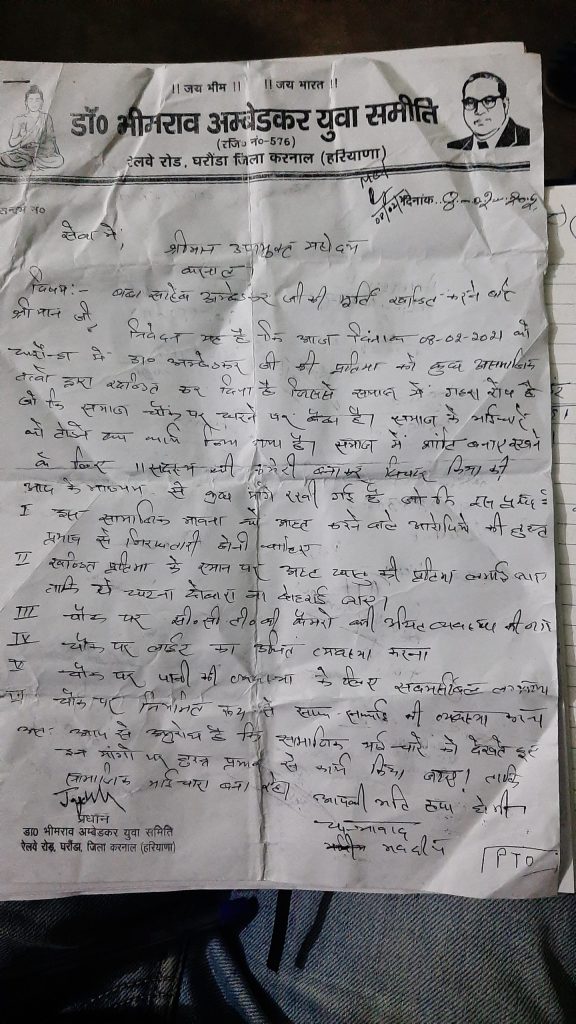 ।। जय भीम ।। ।। जय भारत ।।
डॉ० भीमराव अम्बेडकर युवा समीति
(रजि० नं०-576)
रेलवे रोड, घरौंडा जिला करनाल (हरियाणा)
दिनांक..8-02-
सेवा में,
श्रीमान उपायुक्त महोदय
करनाल
विषय:- बाबा साहेब अम्बेडकर जी की मूर्ति खण्डित करने बारे
श्रीमान जी,
निवेदन यह है कि आज दिनांक 08-02-2021 को
में डा० अम्बेडकर जी की प्रतिमा को कुछ असामाजिक
तत्वों द्वारा खण्डित कर दिया है जिससे समाज में गहरा रोष है
जो कि समाज चौंक पर धरने पर बैठा है। समाज के भाईचारे
को किया गया है। समाज में शांति बनाए रखने
के लिए 11 सदस्य की कमेटी बनाकर विचार किया की
आप के माध्यम से कुछ मांगे रखी गई है जो कि इस प्रकार है:
I इस सामाजिक भावना को आहत करने वाले आरोपियों की तुरन्त
प्रभाव से गिरफतारी होनी चाहिए।
II खण्डित प्रतिमा के स्थान पर अष्ट धातु की प्रतिमा लगाई जाए
ताकि ये घटना दोबारा ना दोहराई जाए।
III चौंक पर सी.सी.टी.वी कैमरो की उचित व्यवस्था की जाए
IV चौंक पर लाईट का उचित व्यवस्था करना
V चौंक पर पानी की व्यवस्था के लिए सबमर्सीबल
VI चौंक पर नियमित रूप से साफ सफाई की व्यवस्था करना
अतः आप से अनुरोध है कि सामाजिक भाई चारे को देखते हुए
इन मांगो पर तुरन्त प्रभाव से कार्य किया जाए। ताकि
सामाजिक भाईचारा बना रहे। आपकी अति कृपा होगी
धन्यवाद
प्रधान
डा0 भीमराव अम्बेडकर युवा समिति
रेलवे रोड़, घरौंडा, जिला करनाल (हरियाणा)
PTO